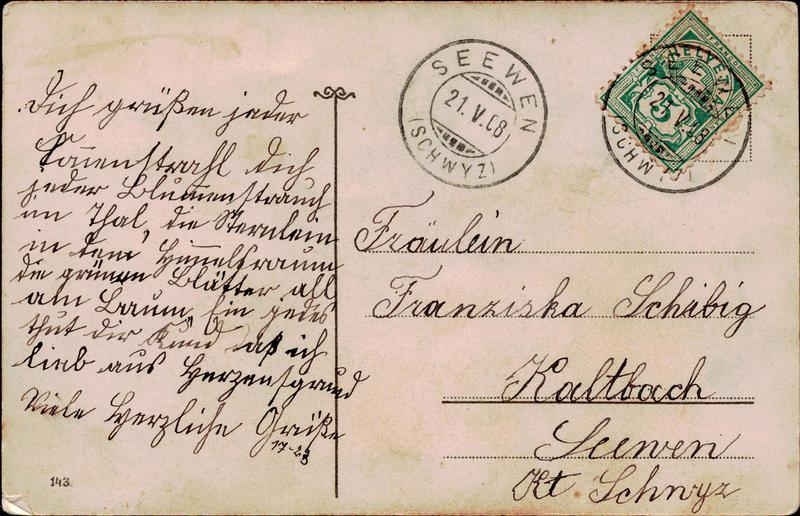 Dich grüßen jeder
Sonnenstrahl dich
jeder Blumenstrauch
im Thal, die Sternlein
in dem Himmelsraum
die grünen Blätter all
am Baum, Ein jedes
thut dir Kund daß ich
lieb aus Herzensgrund
Viele Herzliche Grüße
17-23
143.
SEEWEN
21.V.08
(SCHWYZ)
HELVETIA
FRANCO
5
(SCHWYZ)
Fräulein
Franziska Schibig
Kaltbach
Seewen
Kt Schwyz